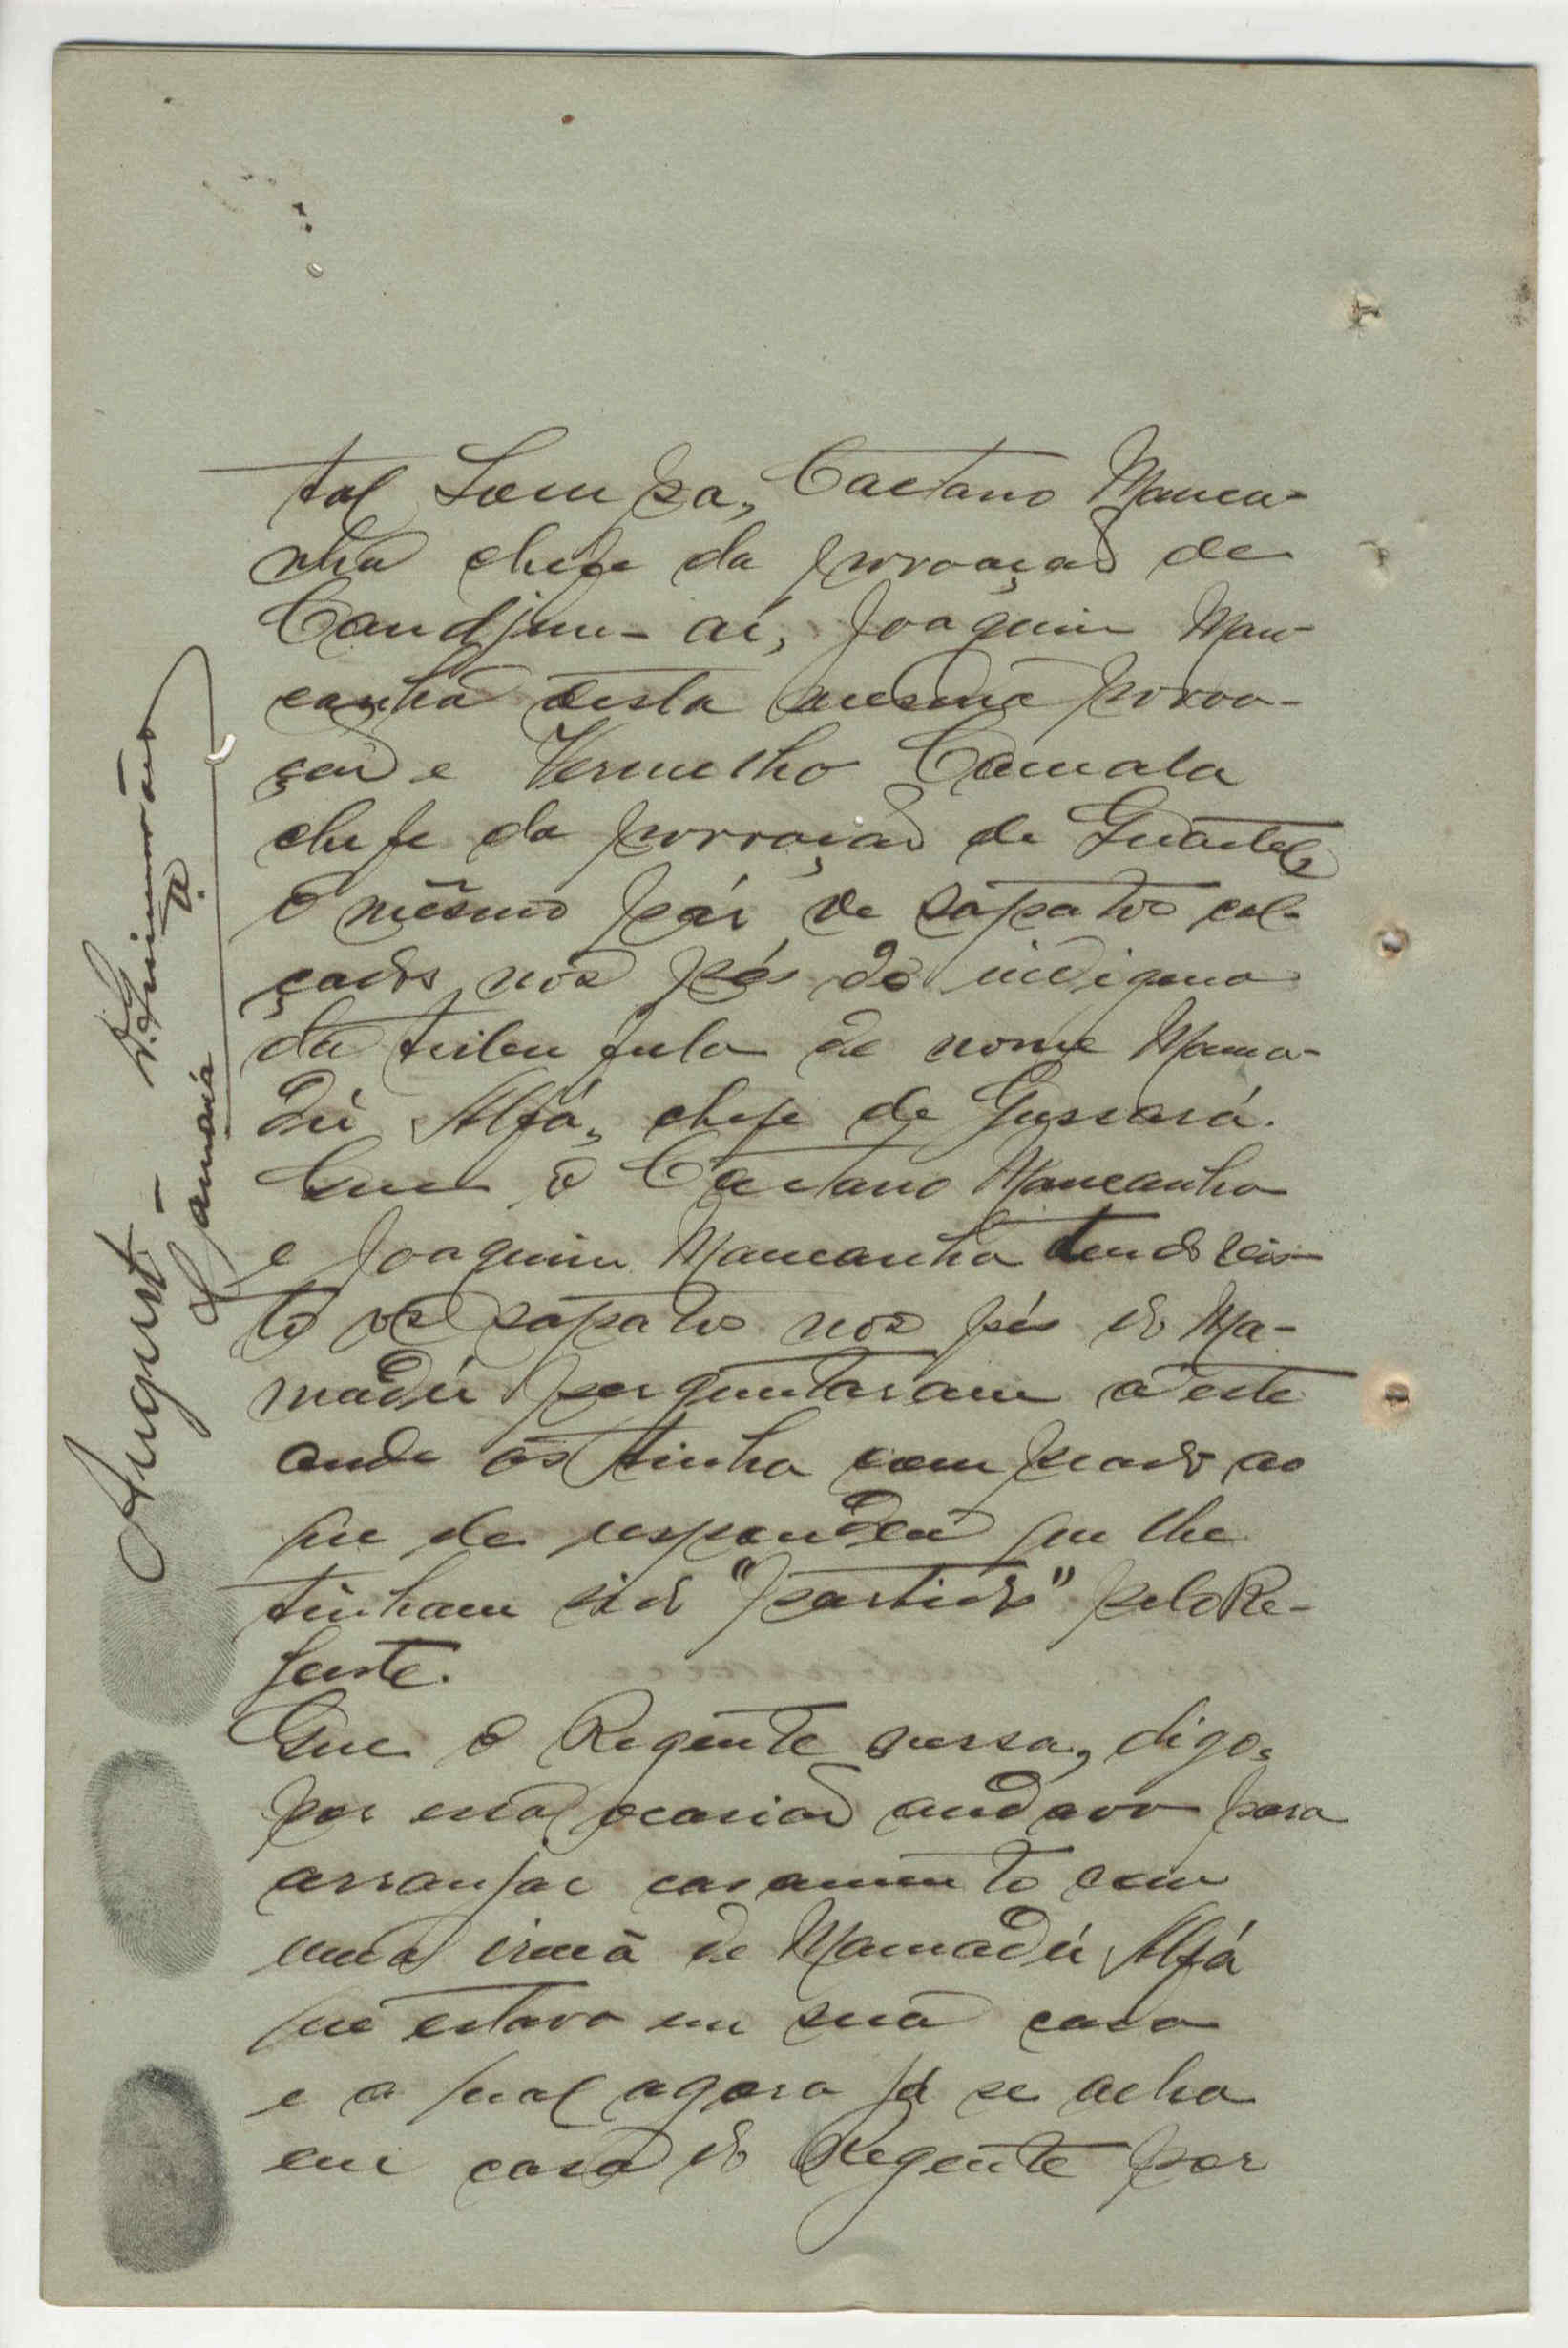 tal Sampa, Caetano Manca-
nha chefe da povoação de
Candjam-ai, Joaquim Man-
canha desta mesma povoa-
ção e Vermelho Camala
chefe da povoação de Guartel,
o mesmo pár de sapatos cal-
çados nos pés do indigena
da tribu fula de nome Mama-
dú Alfá, chefe de Gussará.
Que o Caetano Mancanha
e Joaquim Mancanha tendo vis-
to os sapatos nos pés do Ma-
madú perguntaram a este
onde os tinha comprado ao
que ele respondeu que lhe
tinham sido "partido" pelo Re-
gente.
Que o Regente nessa, digo,
por essa ocasião andava para
arranjar casamento com
uma irmã de Mamadú Alfá
que estava em sua casa
e a qual agora já se acha
em casa do Regente por
August-